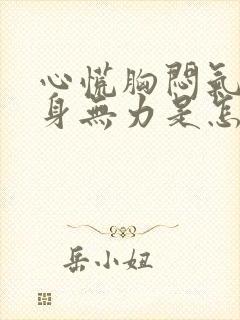 心慌胸悶氣
身無力是怎
岳小妞